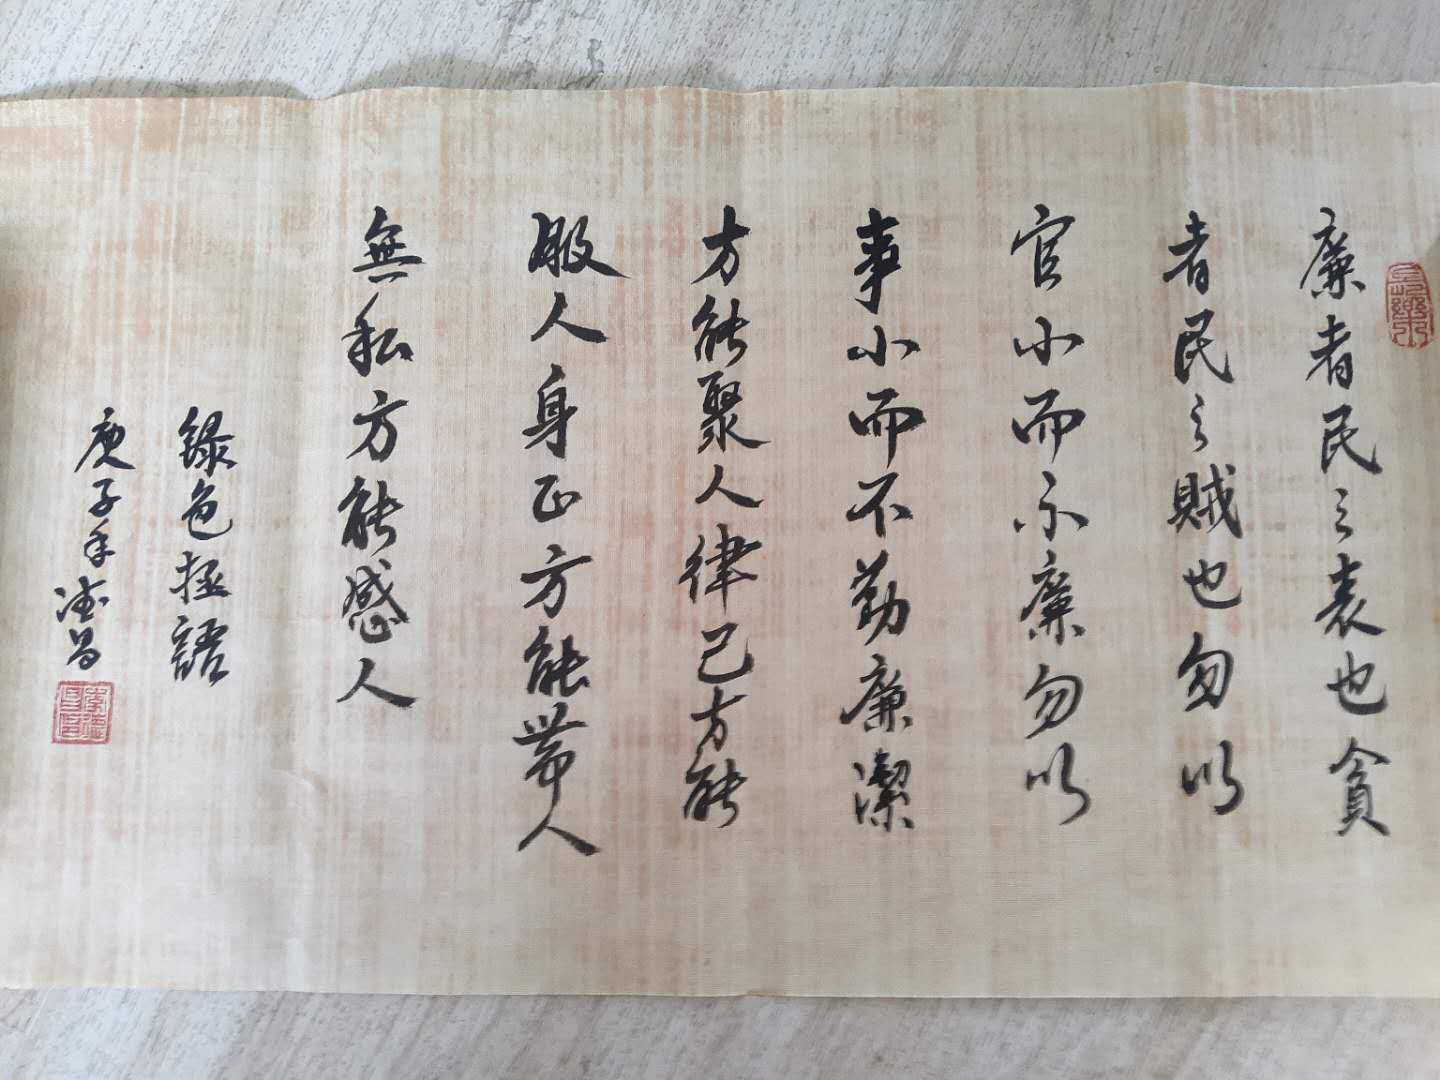 廉者民之表也貪
者民之賊也勿以
官小而不廉勿以
事小而不勤廉潔
方能聚人律己方能
服人身正方能帶人
無私方能感人
錄包拯語
庚子年德昌